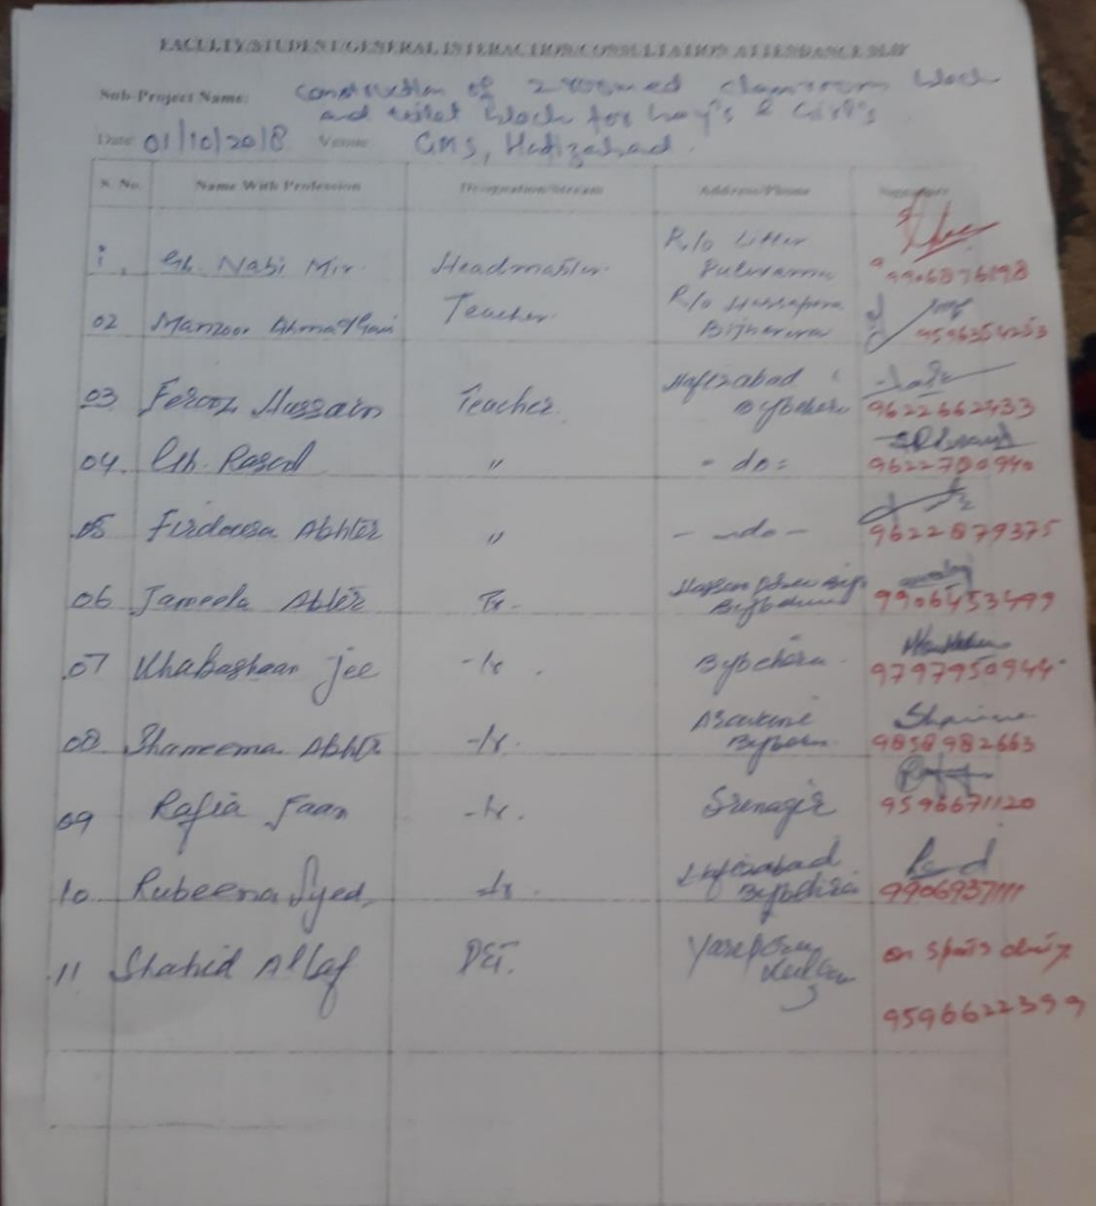 FACULTY/STUDENT/GENERAL INTERACTION/CONSULTATION ATTENDANCE
Sub-Project Name: Construction of 2 roomed classroom block
and toilet block for boy's & Girl's
Date 01/10/2018 Venue: GMS, Hafizabad.
S. No. Name With Profession Designation/Stream Address/Phone Signature
1. Gh. Nabi Mir. Headmaster. R/o Litter Pulwama 9906876198
02 Manzoor Ahmad Teacher. R/o 9596354253
03 Ferooz Hussain Teacher. Hafizabad 9622662433
04. Gh. Rasool " - do = 9622700940
05 Firdousa Akhter " - do - 9622879375
06 Jameela Akter Tr. 9906453499
07 Khabashaan Jee - Tr. 9797950944
08 Shameema Akhter - Tr. 9858982663
09 Rafia Jaan - Tr. Srinagar 9596671120
10 Rubeena Syed Tr. Hafizabad 9906937111
11 Shahid Altaf PET. on sports duty
9596622399